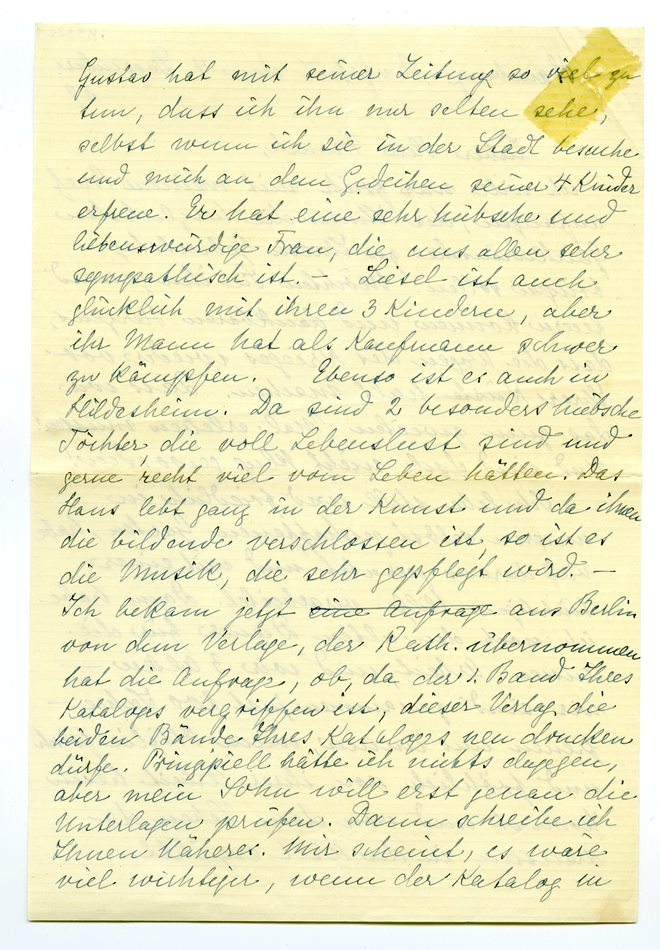 Gustav hat mit seiner Zeitung so viel zu
tun, dass ich ihn nur selten sehe,
selbst wenn ich sie in der Stadt besuche
und mich an dem Gedeihen seiner 4 Kinder
erfreue. Er hat eine sehr hübsche und
liebenswürdige Frau, die uns allen sehr
sympathisch ist. – Liesel ist auch
glücklich mit ihren 3 Kindern, aber
ihr Mann hat als Kaufmann schwer
zu kämpfen. Ebenso ist es auch in
Hildesheim. Da sind 2 besonders hübsche
Töchter, die voll Lebenslust sind und
gerne recht viel vom Leben hätten. Das
Haus lebt ganz in der Kunst und da ihnen
die bildende verschlossen ist, so ist es
die Musik, die sehr gepflegt wird. –
Ich bekam jetzt eine Anfrage aus Berlin
von dem Verlage, der Rath. übernommen
hat die Anfrage, ob, da der 1. Band Ihres
Kataloges vergriffen ist, dieser Verlag die
beiden Bände Ihres Kataloges neu drucken
dürfe. Prinzipiell hätte ich nichts dagegen,
aber mein Sohn will erst genau die
Unterlagen prüfen. Dann schreibe ich
Ihnen Näheres. Mir scheint, es wäre
viel wichtiger, wenn der Katalog in